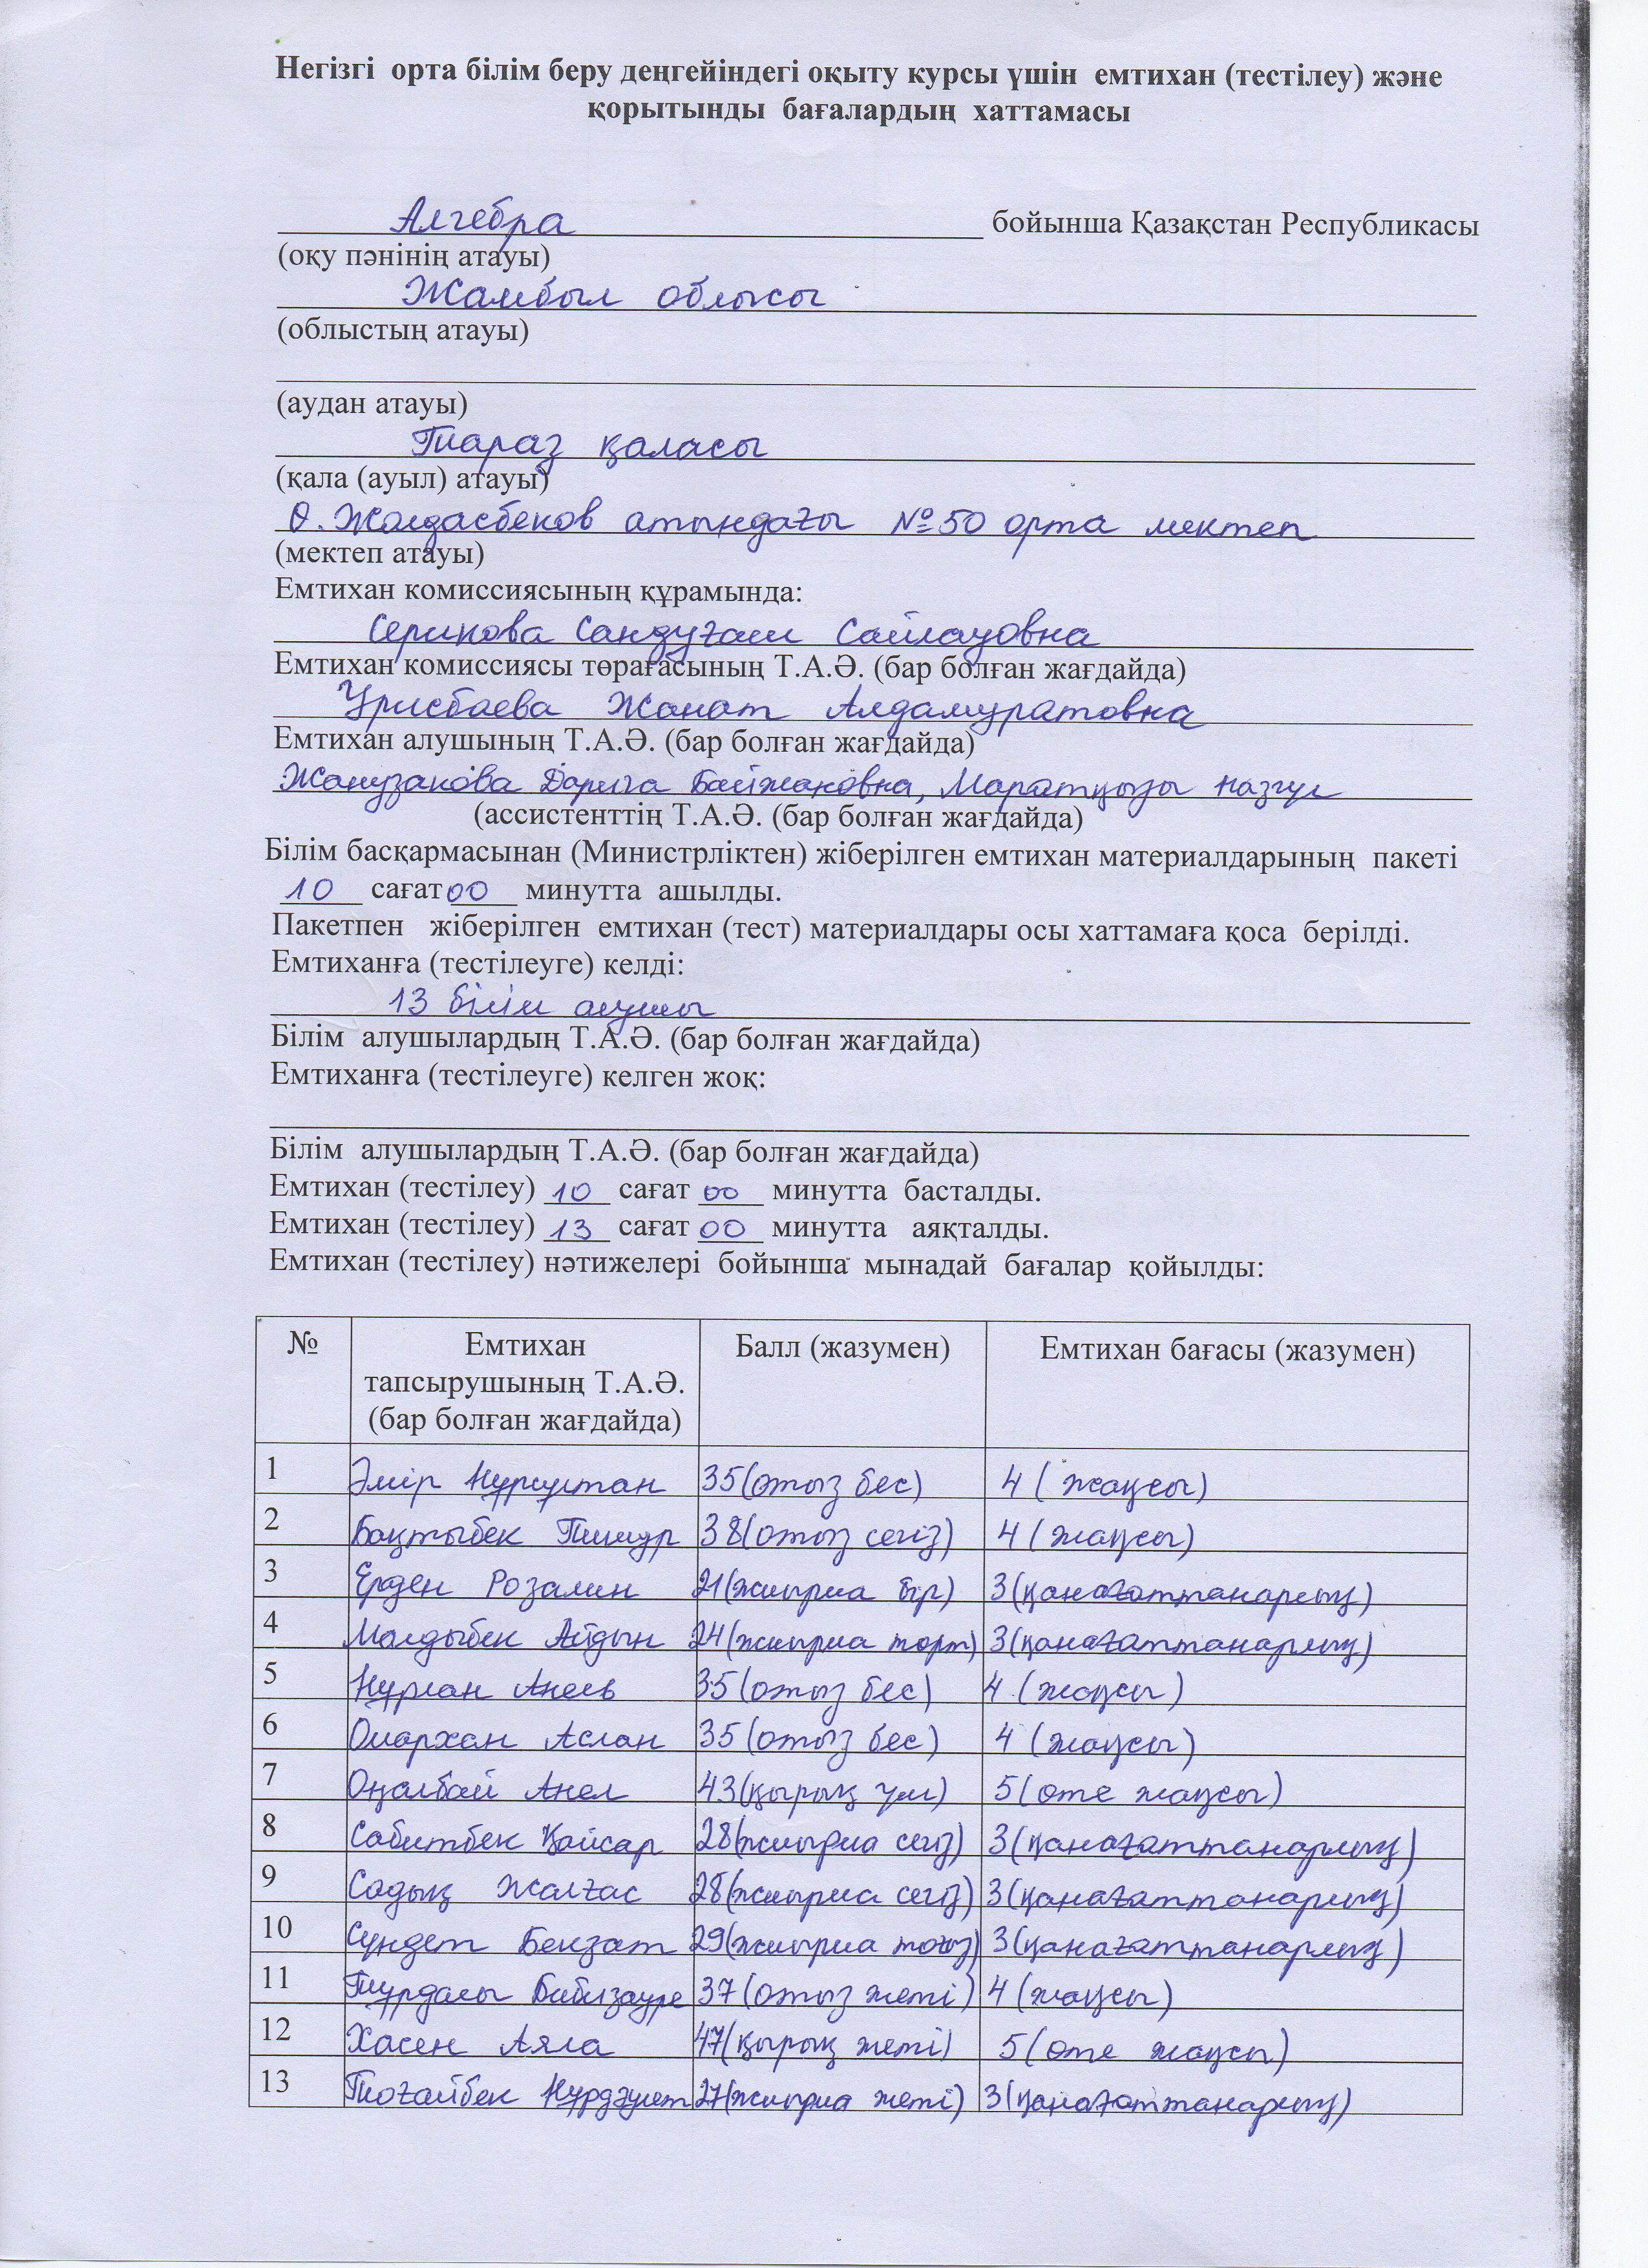 Негізгі орта білім беру деңгейіндегі оқыту курсы үшін емтихан (тестілеу) және
қорытынды бағалардың хаттамасы
Алгебра бойынша Қазақстан Республикасы
(оқу пәнінің атауы)
Жамбыл облысы
(облыстың атауы)
(аудан атауы)
Тараз қаласы
(қала (ауыл) атауы)
Ө. Жолдасбеков атындағы №50 орта мектеп
(мектеп атауы)
Емтихан комиссиясының құрамында:
Серикова Сандуғаш Сайлауовна
Емтихан комиссиясы төрағасының Т.А.Ә. (бар болған жағдайда)
Урисбаева Жанат Алдамуратовна
Емтихан алушының Т.А.Ә. (бар болған жағдайда)
Жанузакова Дариға Байжановна, Маратқызы Назгүл
(ассистенттің Т.А.Ә. (бар болған жағдайда)
Білім басқармасынан (Министрліктен) жіберілген емтихан материалдарының пакеті
10 сағат 00 минутта ашылды.
Пакетпен жіберілген емтихан (тест) материалдары осы хаттамаға қоса берілді.
Емтиханға (тестілеуге) келді:
13 білім алушы
Білім алушылардың Т.А.Ә. (бар болған жағдайда)
Емтиханға (тестілеуге) келген жоқ:
Білім алушылардың Т.А.Ә. (бар болған жағдайда)
Емтихан (тестілеу) 10 сағат 00 минутта басталды.
Емтихан (тестілеу) 13 сағат 00 минутта аяқталды.
Емтихан (тестілеу) нәтижелері бойынша мынадай бағалар қойылды:
№ Емтихан тапсырушының Т.А.Ә. (бар болған жағдайда) Балл (жазумен) Емтихан бағасы (жазумен)
1 Әмір Нұрсұлтан 35(отыз бес) 4 (жақсы)
2 Бақтыбек Тимур 38(отыз сегіз) 4 (жақсы)
3 Ерден Розалин 21(жиырма бір) 3(қанағаттанарлық)
4 Молдыбек Айдын 24(жиырма төрт) 3(қанағаттанарлық)
5 Нұрлан Анель 35(отыз бес) 4 (жақсы)
6 Омархан Аслан 35(отыз бес) 4 (жақсы)
7 Оңалбай Анел 43(қырық үш) 5(өте жақсы)
8 Сабитбек Қайсар 28(жиырма сегіз) 3(қанағаттанарлық)
9 Садық Жалғас 28(жиырма сегіз) 3(қанағаттанарлық)
10 Сүндет Бекзат 29(жиырма тоғыз) 3(қанағаттанарлық)
11 Тұрдалы Бибизауре 37(отыз жеті) 4(жақсы)
12 Хасен Аяла 47(қырық жеті) 5(өте жақсы)
13 Тоғайбек Нұрдәулет 27(жиырма жеті) 3(қанағаттанарлық)